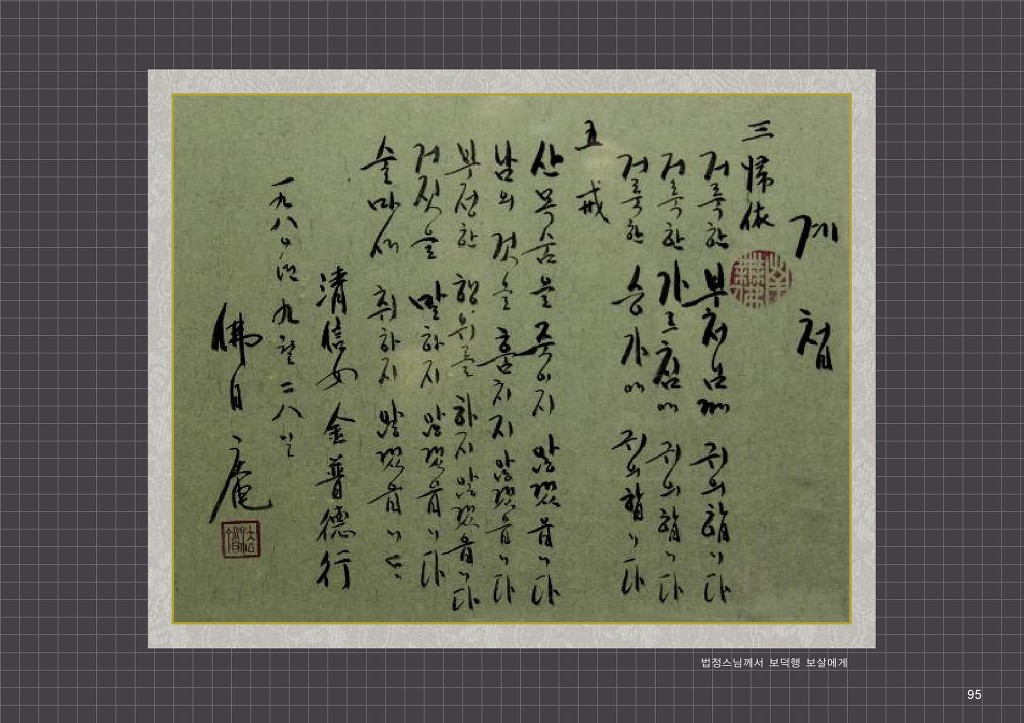 계 첩
三帰依
거룩한 부처님께 귀의합니다
거룩한 가르침에 귀의합니다
거룩한 승가에 귀의합니다
五戒
산 목숨을 죽이지 않겠읍니다
남의 것을 훔치지 않겠읍니다
부정한 행위를 하지 않겠읍니다
거짓을 말하지 않겠읍니다
술 마시 취하지 않겠읍니다
清信女 金普德行
一九八 年 九월 二八일
佛日庵
법정스님께서 보덕행 보살에게
95